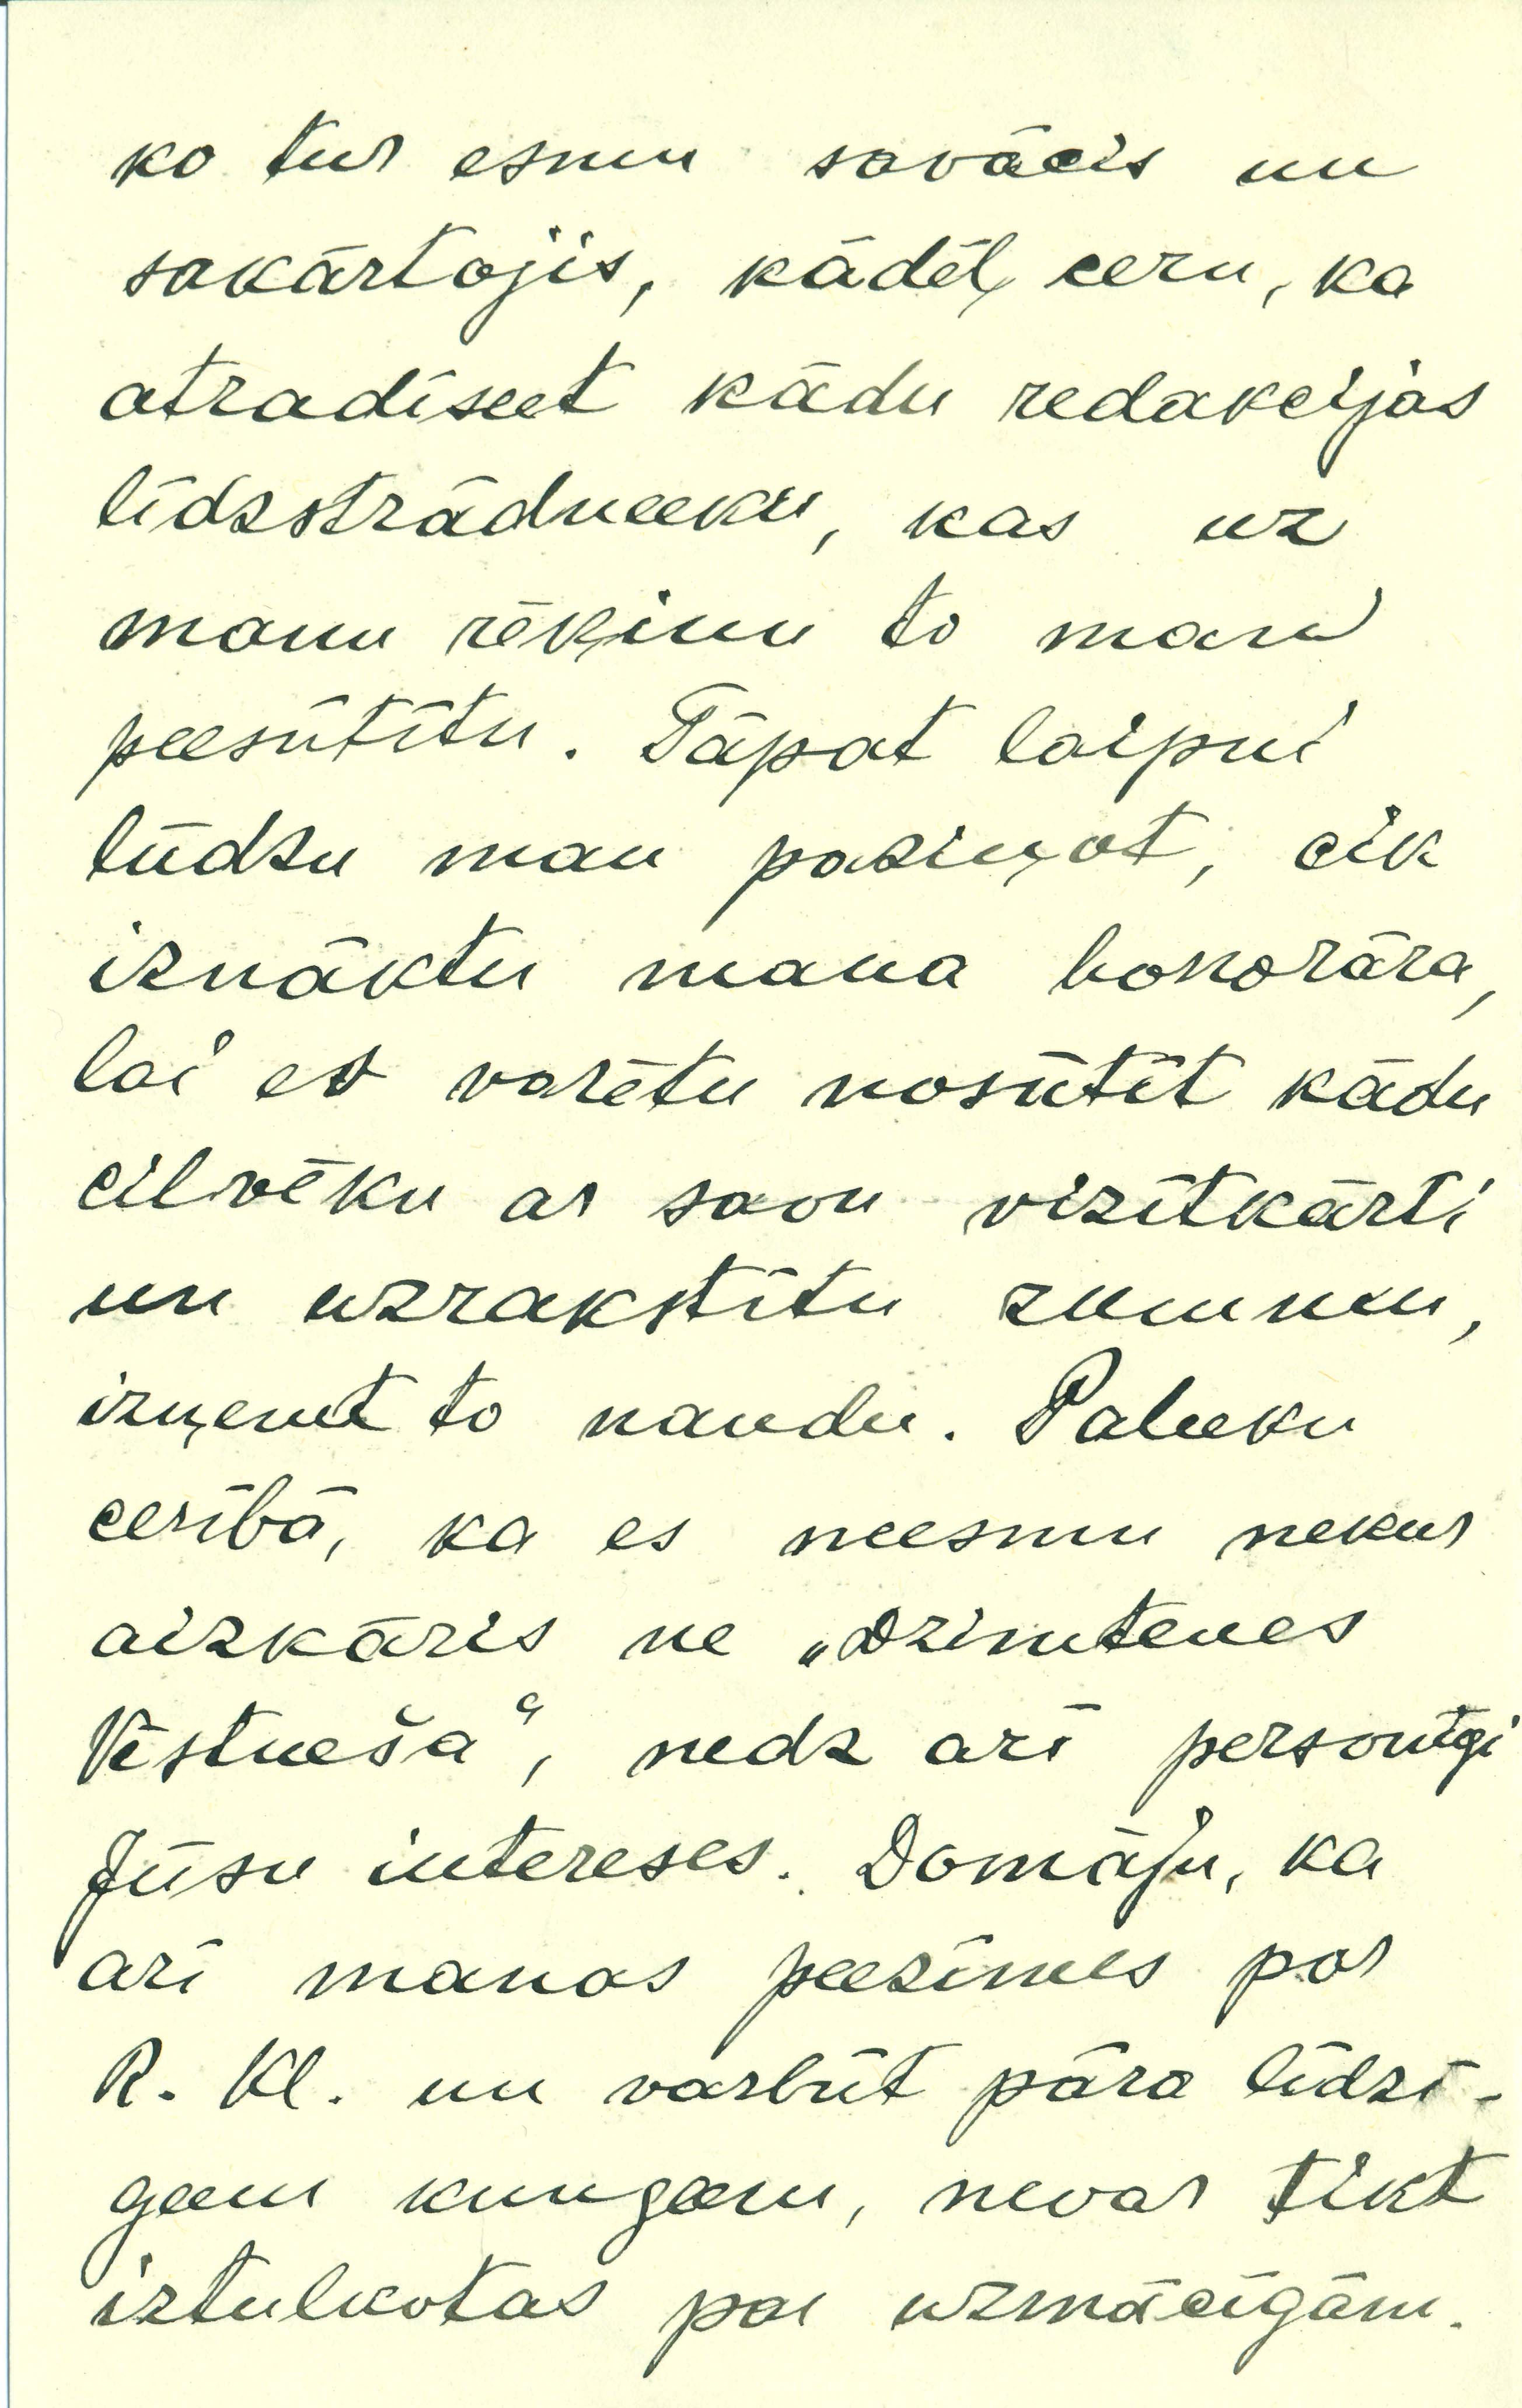 ko tur esmu savācis un
sakārtojis, kādēļ ceru, ka
atradīseet kādu redakcijas
līdzstrādneeku, kas uz
manu rēķinu to man
peesūtītu. Tāpat laipni
lūdzu man paziņot, cik
iznāktu mana honorāra,
lai es varētu nosūtīt kādu
cilvēku ar savu vizītkārti
un uzrakstītu zummu,
izņemt to naudu. Paleeku
cerībā, ka es neesmu nekur
aizkāris ne „Dzimtenes
Vēstneša“, nedz arī personīgi
Jūsu intereses. Domāju, ka
arī manas peezīmes par
R. Kl. un varbūt pāra līdzī-
geem kungeem, nevar tikt
iztulkotas par uzmācīgām.